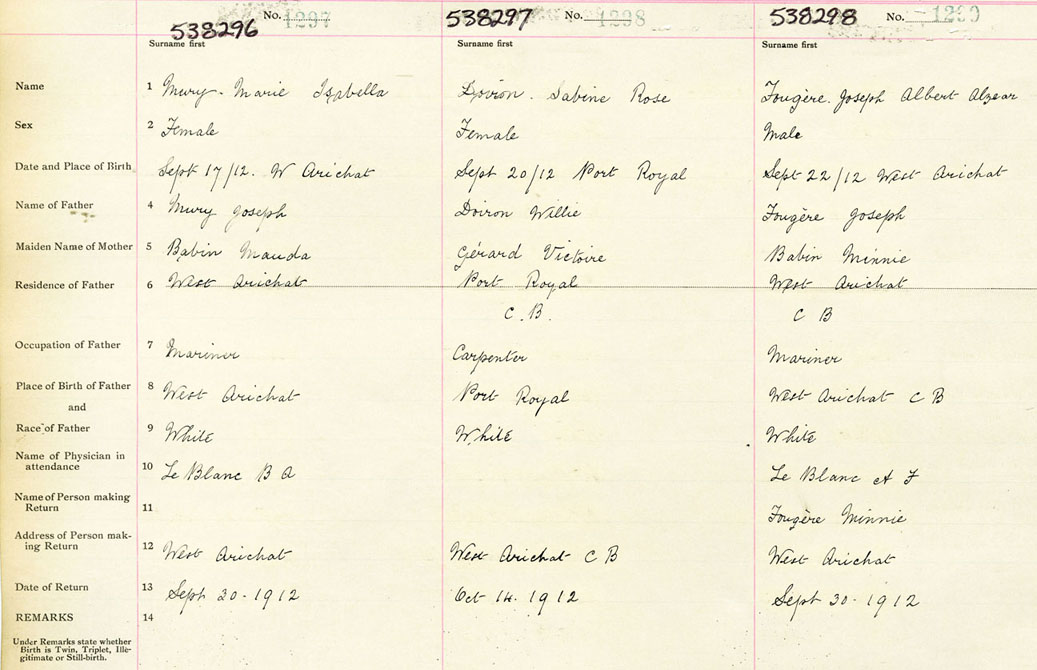 538296 No. 1297 538297 No. 1298 538298 No. 1299
Surname first Surname first Surname first
Name 1 Mury. Marie Isabella Doiron. Sabine Rose Fougère. Joseph Albert Alzear
Sex 2 Female Female Male
Date and Place of Birth 3 Sept 17/12. W Arichat Sept 20/12 Port Royal Sept 22/12 West Arichat
Name of Father 4 Mury Joseph Doiron Willie Fougère Joseph
Maiden Name of Mother 5 Babin Mauda Gérard Victoire Babin Minnie
Residence of Father 6 West Arichat Port Royal West Arichat
C.B. C B
Occupation of Father 7 Mariner Carpenter Mariner
Place of Birth of Father 8 West Arichat Port Royal West Arichat C B
and
Race of Father 9 White White White
Name of Physician in
attendance 10 Le Blanc B A Le Blanc A F
Name of Person making
Return 11 Fougère Minnie
Address of Person mak-
ing Return 12 West Arichat West Arichat C B West Arichat
Date of Return 13 Sept 30-1912 Oct 14. 1912 Sept 30-1912
REMARKS 14
Under Remarks state whether
Birth is Twin, Triplet, Ille-
gitimate or Still-birth.